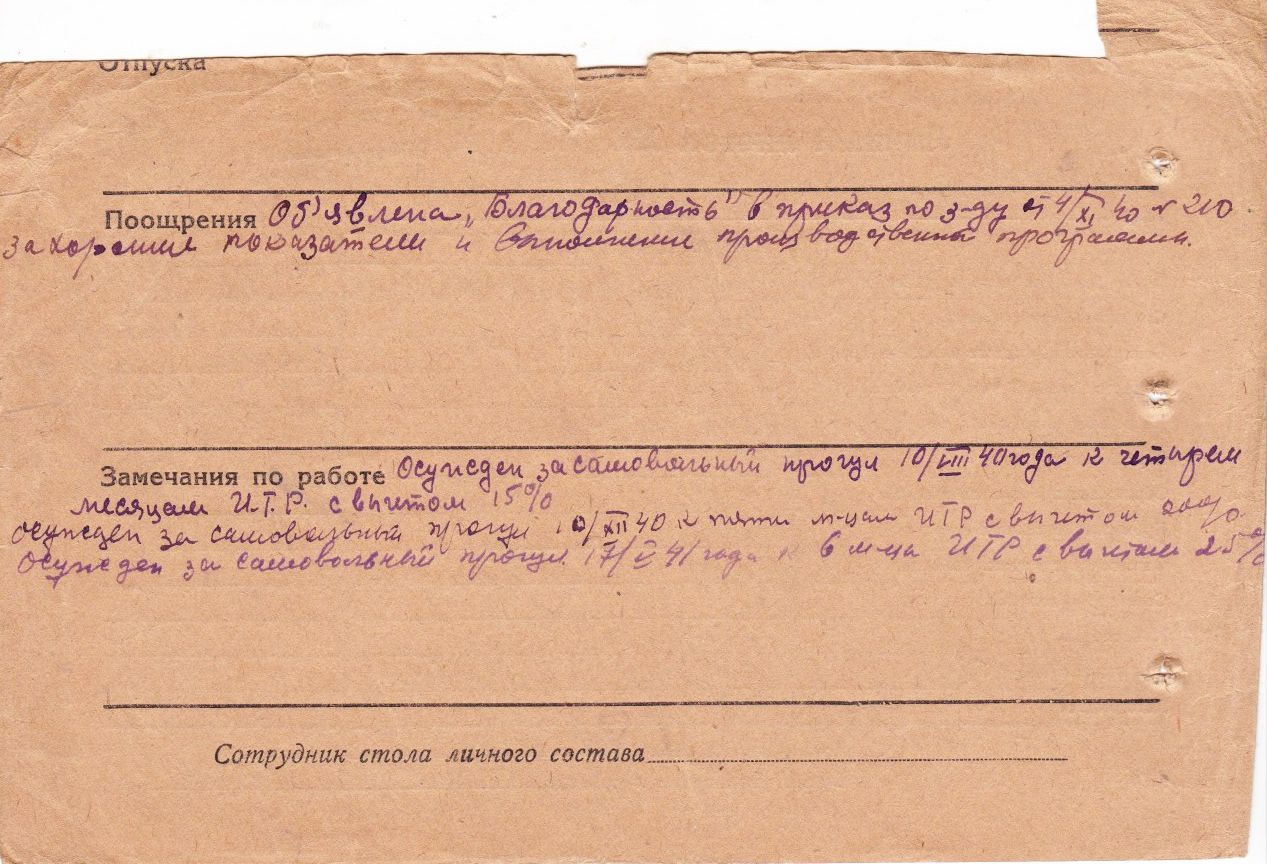 Отпуска
Поощрения Об'явлена „Благодарность" в приказ по з-ду от 4/XI 40 № 210
за хорошие показатели и выполнение производственной программы.
Замечания по работе Осужден за самовольный прогул 10/VIII 40 года к четырем
месяцам И.Т.Р. с вычетом 15%
осужден за самовольный прогул 10/XII 40 к пяти м-цам ИТР с вычетом 20%
Осужден за самовольный прогул 17/V 41 года к 6 м-ца ИТР с вычетом 25%
Сотрудник стола личного состава